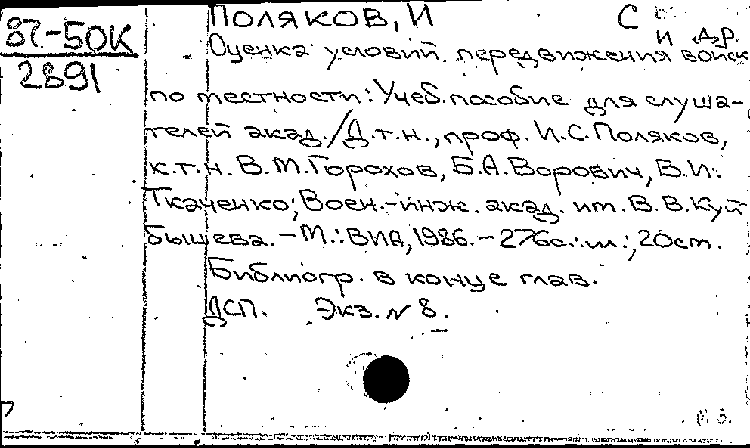 87-50К
2891
ПОЛЯКОВ, И С и др.
Оценка условий передвижения войск
по местности: Учеб. пособие для слуша-
телей акад./Д.т.н., проф. И.С. Поляков,
к.т.н. В.М. Горохов, Б.А. Ворович, В.И.
Ткаченко; Воен.-инж. акад. им. В.В. Куй
бышева. – М.: ВИА, 1986. – 276с.: ил.; 20см.
Библиогр. в конце глав.
ДСП. Экз. № 8.